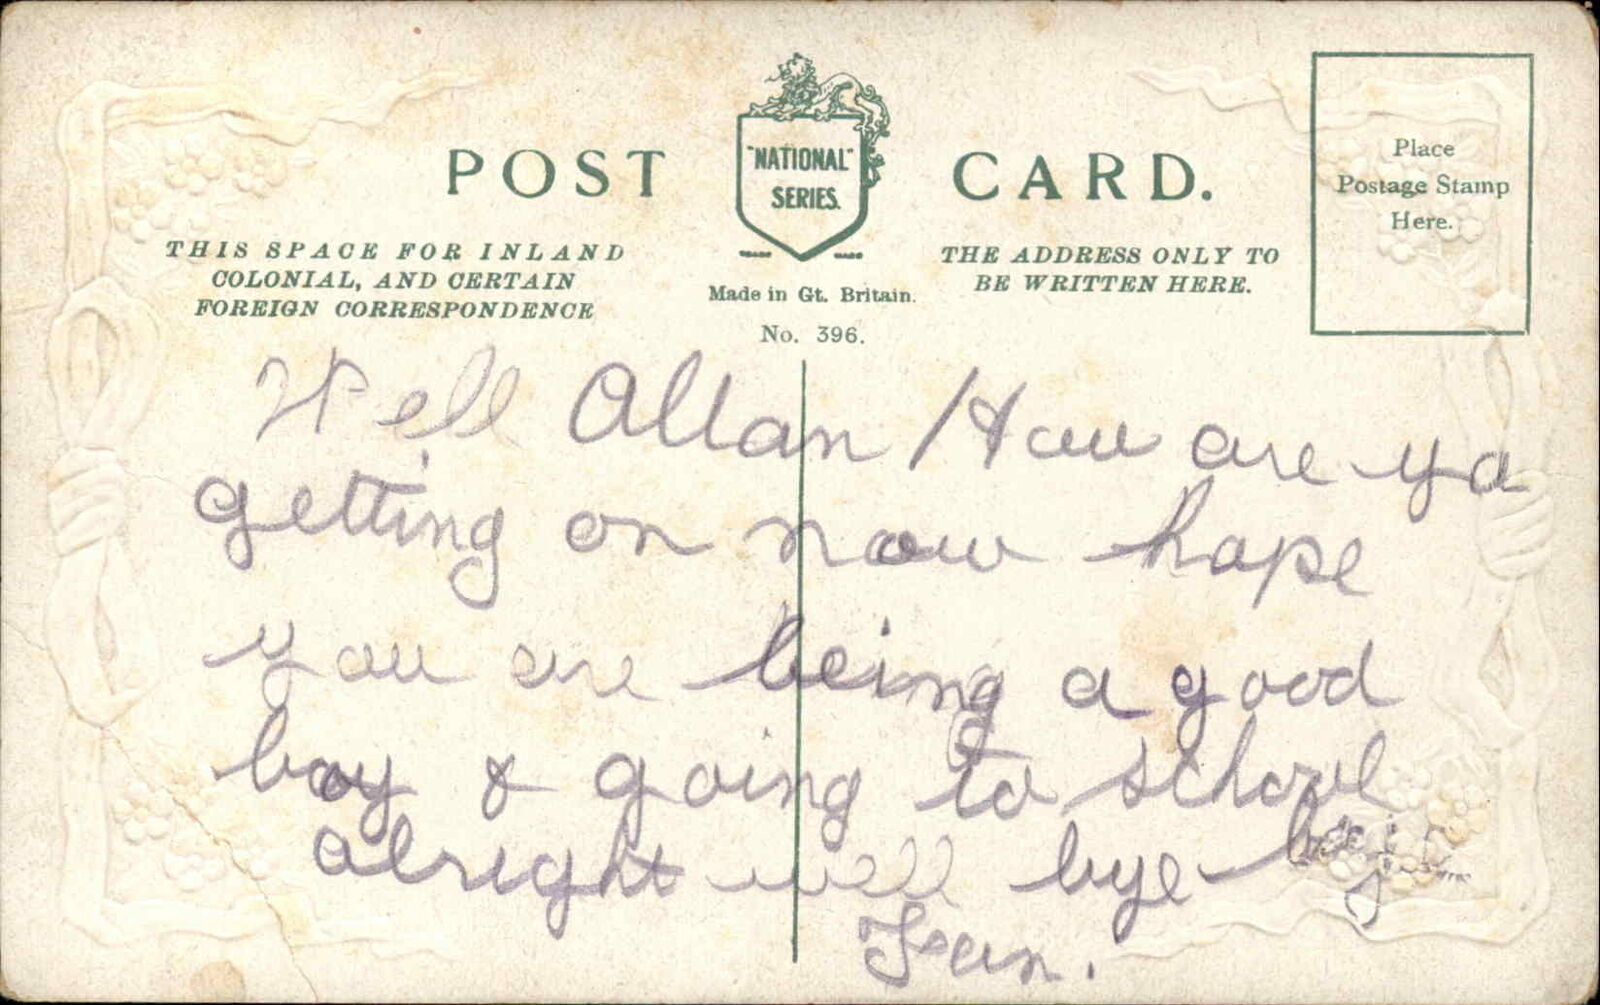 POST CARD.
"NATIONAL"
SERIES.
Place
Postage Stamp
Here.
THIS SPACE FOR INLAND
COLONIAL, AND CERTAIN
FOREIGN CORRESPONDENCE
THE ADDRESS ONLY TO
BE WRITTEN HERE.
Made in Gt. Britain.
No. 396.
Well Allan How are ya
getting on now hope
you are being a good
boy & going to school
alright well bye-